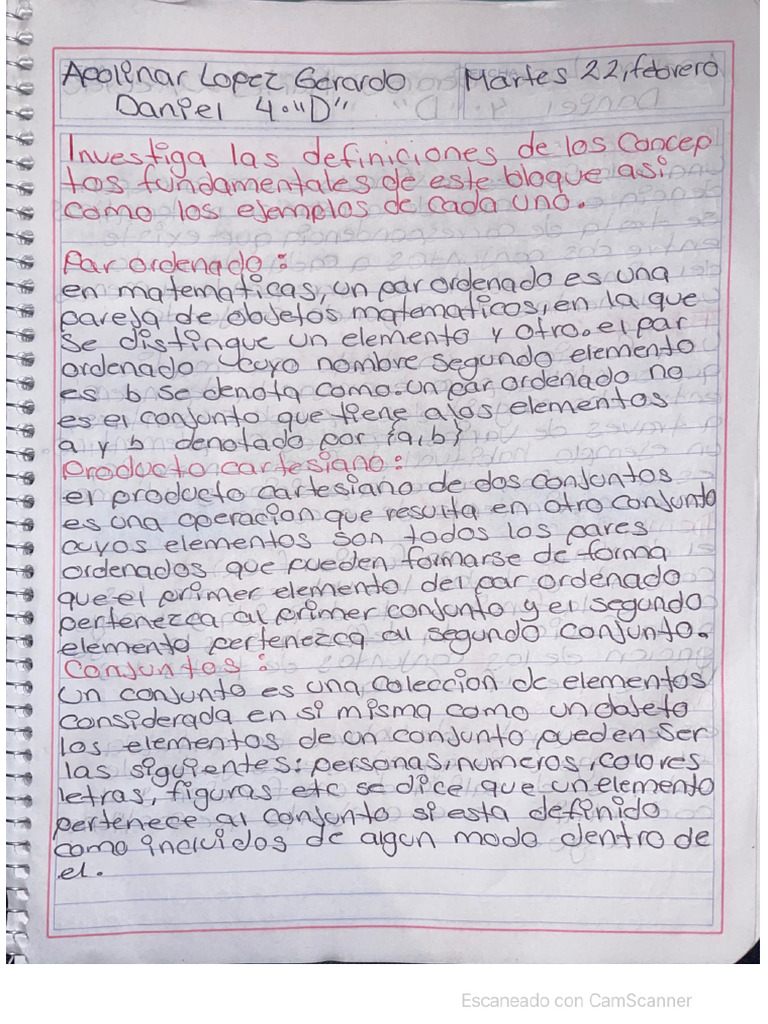 Apolinar Lopez Gerardo Martes 22, febrero
Daniel 4."D"
Investiga las definiciones de los Concep
tos fundamentales de este bloque asi
como los ejemplos de cada uno.
Par ordenado:
en matematicas, un par ordenado es una
pareja de objetos matematicos, en la que
se distingue un elemento y otro. el par
ordenado cuyo nombre segundo elemento
es b se denota como. un par ordenado no
es el conjunto que tiene a los elementos
a y b denotado por {a,b}
Producto cartesiano:
el producto cartesiano de dos conjuntos
es una operacion que resulta en otro conjunto
cuyos elementos son todos los pares
ordenados que pueden formarse de forma
que el primer elemento del par ordenado
pertenezca al primer conjunto y el segundo
elemento pertenezca al segundo conjunto.
Conjuntos:
un conjunto es una coleccion de elementos
considerada en si misma como un objeto
los elementos de un conjunto pueden ser
las siguientes: personas, numeros, colores
letras, figuras etc se dice que un elemento
pertenece al conjunto si esta definido
como incluidos de algun modo dentro de
el.
Escaneado con CamScanner